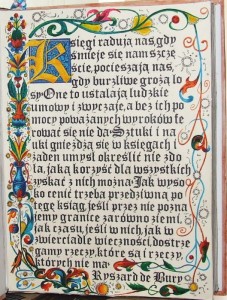 Księgi radują nas, gdy
śmieje się nam szczę
ście, pocieszają nas,
gdy burzliwe grożą lo
sy One to ustalają ludzkie
umowy i zwyczaje, a bez ich po
mocy poważanych wyroków fe
rować się nie da Sztuki i na
uki gnieżdżą się w księgach i
żaden umysł określić nie zdo
ła, jaką korzyść dla wszystkich
zyskać z nich można. Jak wyso
ko cenić trzeba przedziwną po
tęgę ksiąg, jeśli przez nie pozna
jemy granice zarówno ziemi,
jak czasu, jeśli w nich, jak w
zwierciadle wieczności, dostrze
gamy rzeczy, które są i rzeczy,
których nie ma
Ryszard de Bury